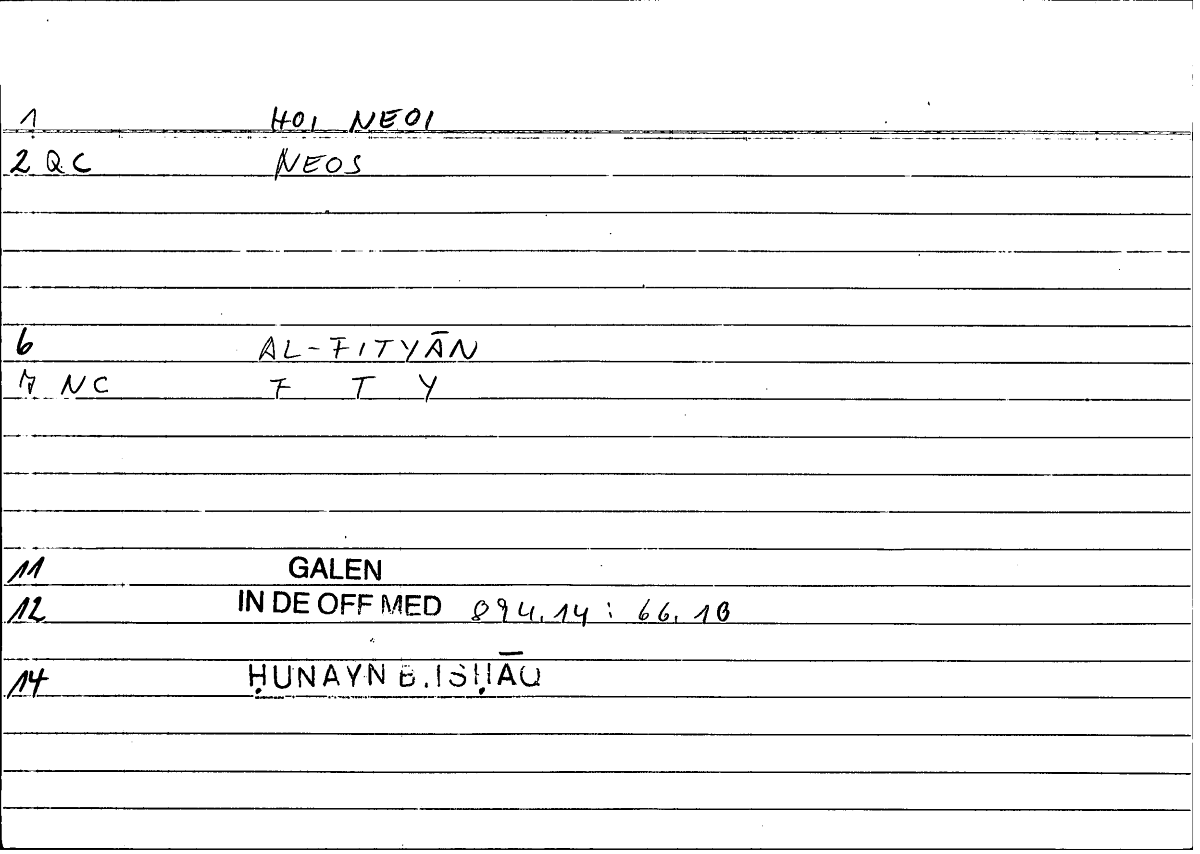 1 HOI NEOI
2 QC NEOS
6 AL-FITYĀN
7 NC F T Y
11 GALEN
12 IN DE OFF MED 894.14 : 66.10
14 ḤUNAYN B. ISḤĀQ